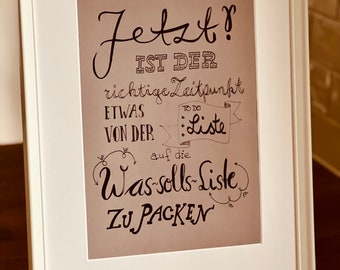 Jetzt?
IST DER
richtige Zeitpunkt
ETWAS
VON DER
TO DO
Liste
auf die
Was-solls-Liste
ZU PACKEN